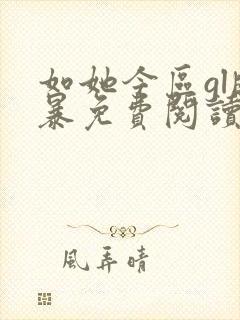 如她今區gl風
暴免費閱讀
風弄晴